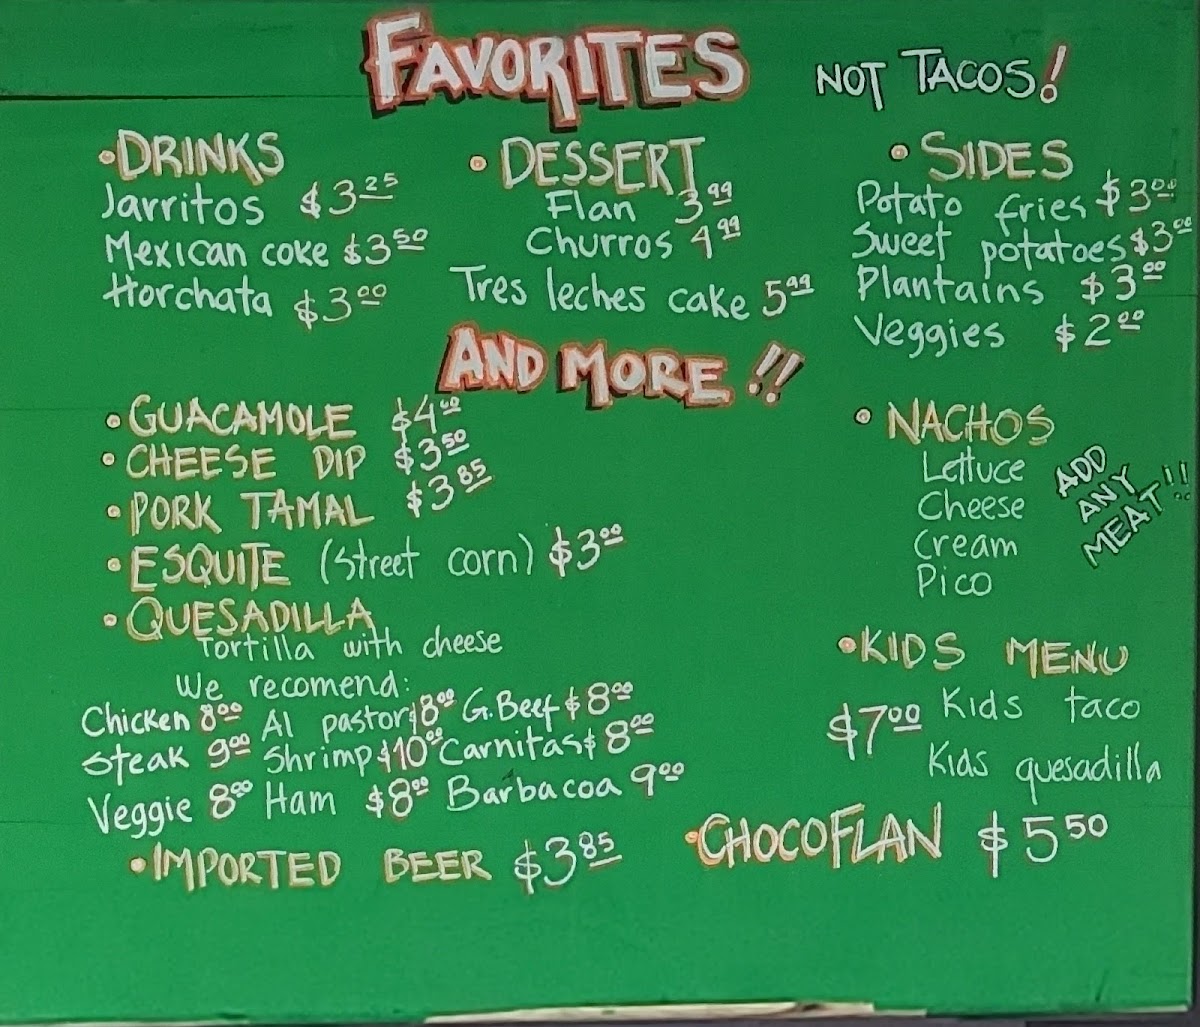 FAVORITES NOT TACOS!
• DRINKS
Jarritos $3.25
Mexican coke $3.50
Horchata $3.00
• DESSERT
Flan 3.99
Churros 4.99
Tres leches cake 5.99
• SIDES
Potato fries $3.00
Sweet potatoes $3.00
Plantains $3.00
Veggies $2.00
AND MORE!!
• GUACAMOLE $4.00
• CHEESE DIP $3.50
• PORK TAMAL $3.85
• ESQUITE (street corn) $3.00
• QUESADILLA
Tortilla with cheese
We recomend:
Chicken 8.00 Al pastor $8.00 G. Beef $8.00
Steak 9.00 Shrimp $10.00 Carnitas $8.00
Veggie 8.00 Ham $8.00 Barbacoa 9.00
• IMPORTED BEER $3.85
• NACHOS
Lettuce
Cheese
Cream
Pico
ADD
ANY
MEAT!!
• KIDS MENU
$7.00 Kids taco
Kids quesadilla
• CHOCOFLAN $5.50